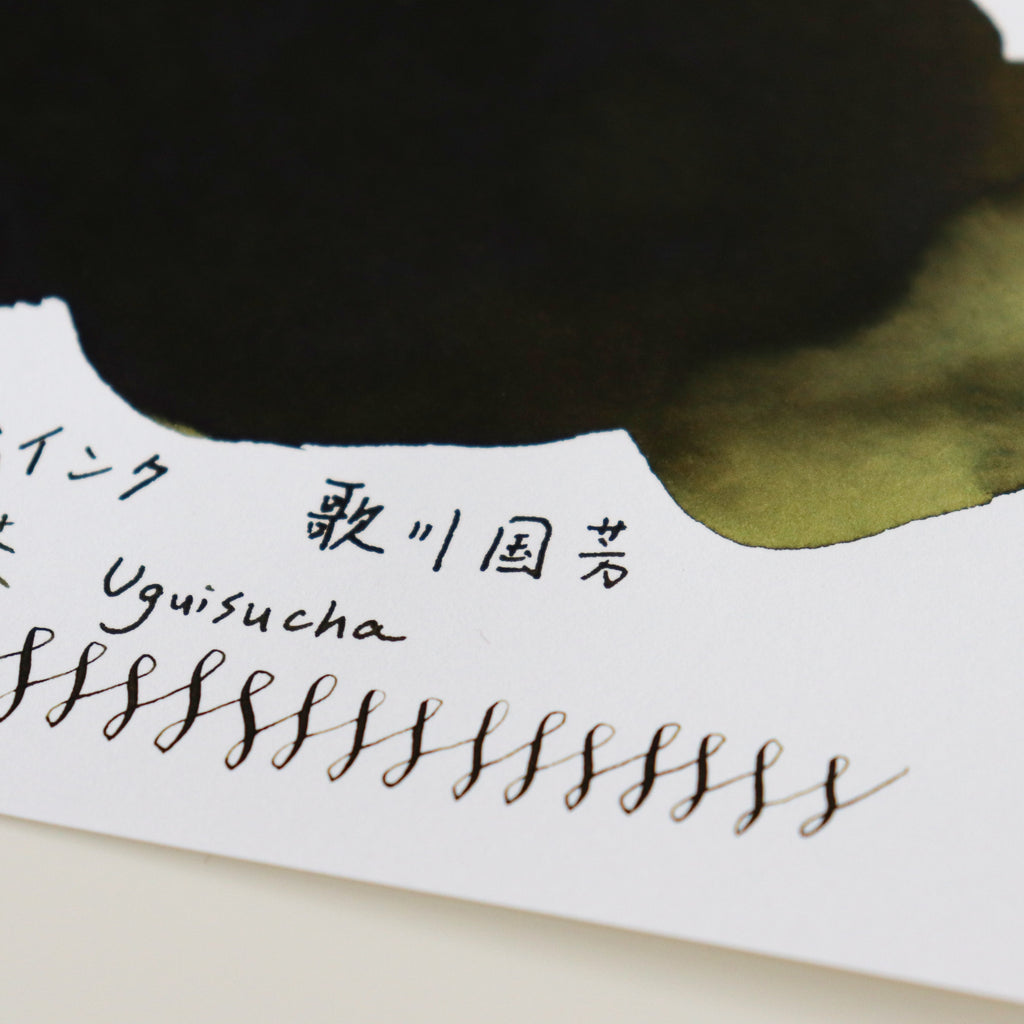 インク 歌川国芳
Uguisucha